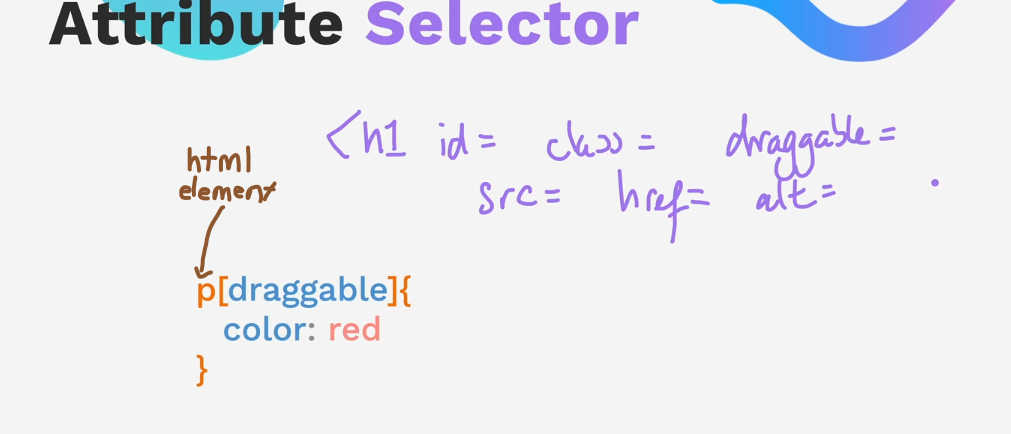 Attribute Selector
<h1 id= class= draggable=
src= href= alt= .
html
element
p[draggable]{
color: red
}